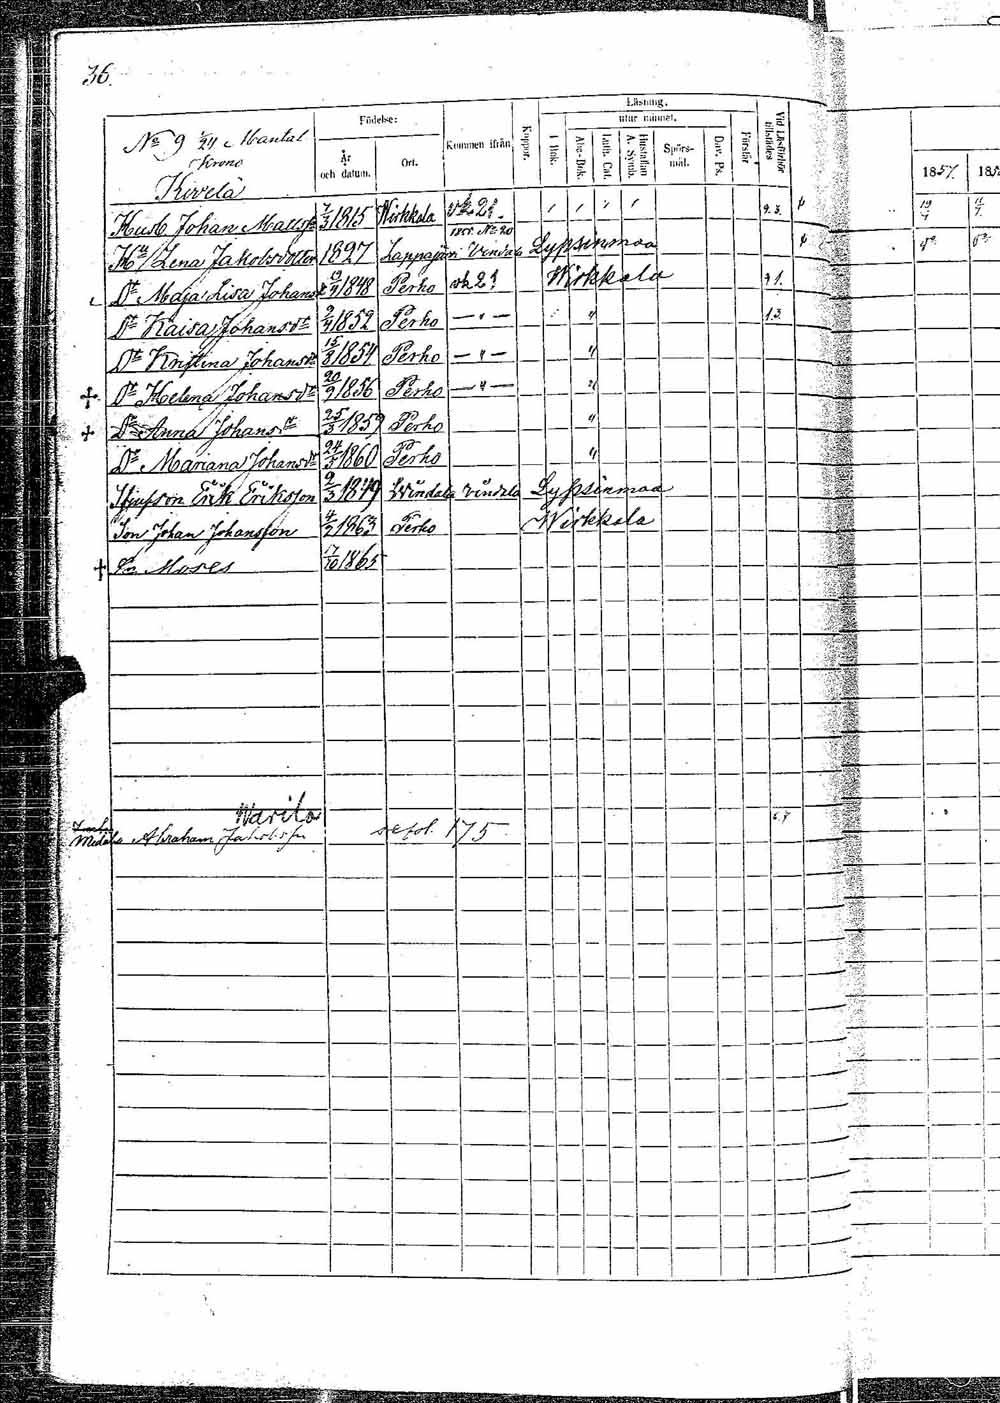 36.
No 9 1/24 Mantal
Krono
Kivelä
Födelse:
År och datum.
Ort.
Kommen ifrån
Koppor.
Läsning,
utur minnet.
I Bok.
Abc-Bok.
Luth. Cat.
Hustaflan A. Symb.
Spörs-mål.
Dav. Ps.
Förstår
Vid Läsförhör tillstädes
1857.
Husb Johan Mattsson 7/3 1815 Wirkkala 9.3.
Hu Lena Jakobsdotter 1827 Lappajärvi Vindala Lypsinmaa
Dr Maja Lisa Johans 1848 Perho Wirkkala
Dr Kaisa Johansdr 1852 Perho — " — " 13
Dr Kristina Johansdr 15/3 1854 Perho — " — "
+ Dr Helena Johansdr 20/9 1856 Perho — " — "
+ Dr Anna Johansdr 25/3 1859 Perho "
Dr Mariana Johansdr 24/5 1860 Perho "
Stjufson Erik Eriksson 9/3 1849 Windala Vindala Lypsinmaa
Son Johan Johansson 4/2 1863 Perho Wirkkala
+ Sn Moses 17/10 1865
Warila
Abraham Jakobsson se fol. 175